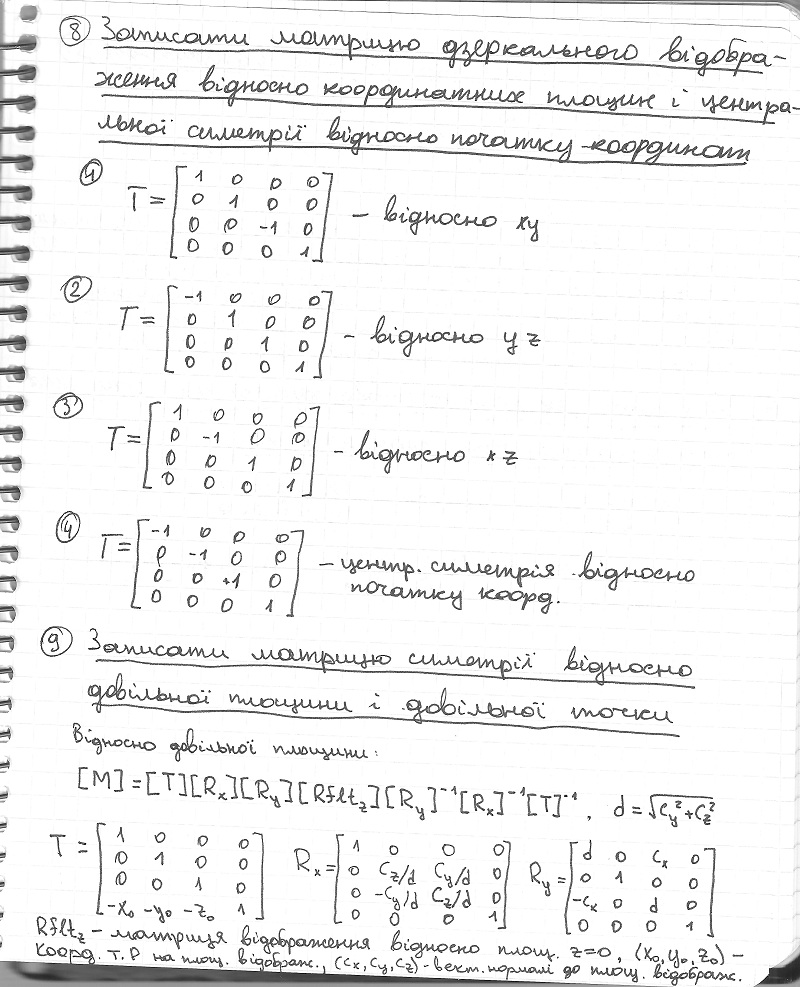 ⑧ Записати матрицю дзеркального відобра-
ження відносно координатних площин і центра-
льної симетрії відносно початку координат
① T = [ 1 0 0 0
0 1 0 0
0 0 -1 0
0 0 0 1 ] – відносно xy
② T = [ -1 0 0 0
0 1 0 0
0 0 1 0
0 0 0 1 ] – відносно yz
③ T = [ 1 0 0 0
0 -1 0 0
0 0 1 0
0 0 0 1 ] – відносно xz
④ T = [ -1 0 0 0
0 -1 0 0
0 0 +1 0
0 0 0 1 ] – центр. симетрія відносно
початку коорд.
⑨ Записати матрицю симетрії відносно
довільної площини і довільної точки
Відносно довільної площини:
[M] = [T][Rx][Ry][Rfltz][Ry]⁻¹[Rx]⁻¹[T]⁻¹, d = √(Cy² + Cz²)
T = [ 1 0 0 0
0 1 0 0
0 0 1 0
-x₀ -y₀ -z₀ 1 ]
Rx = [ 1 0 0 0
0 Cz/d Cy/d 0
0 -Cy/d Cz/d 0
0 0 0 1 ]
Ry = [ d 0 Cx 0
0 1 0 0
-Cx 0 d 0
0 0 0 1 ]
Rfltz – матриця відображення відносно площ. z=0, (x₀, y₀, z₀) –
коорд. т. P на площ. відображ., (Cx, Cy, Cz) – вект. нормалі до площ. відображ.